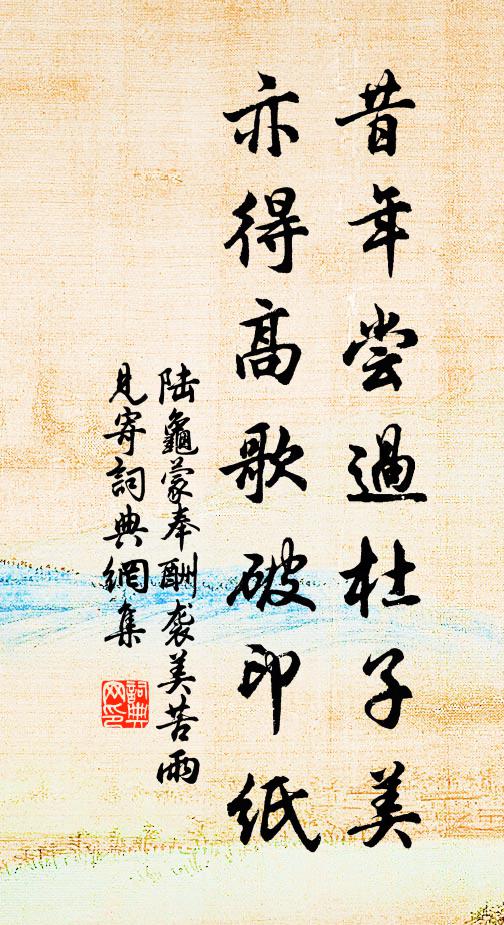 昔年尝過杜子美
亦得高歌破印紙
陆龜蒙奉酬袭美苦雨
見寄詞典網集
詞典
网印